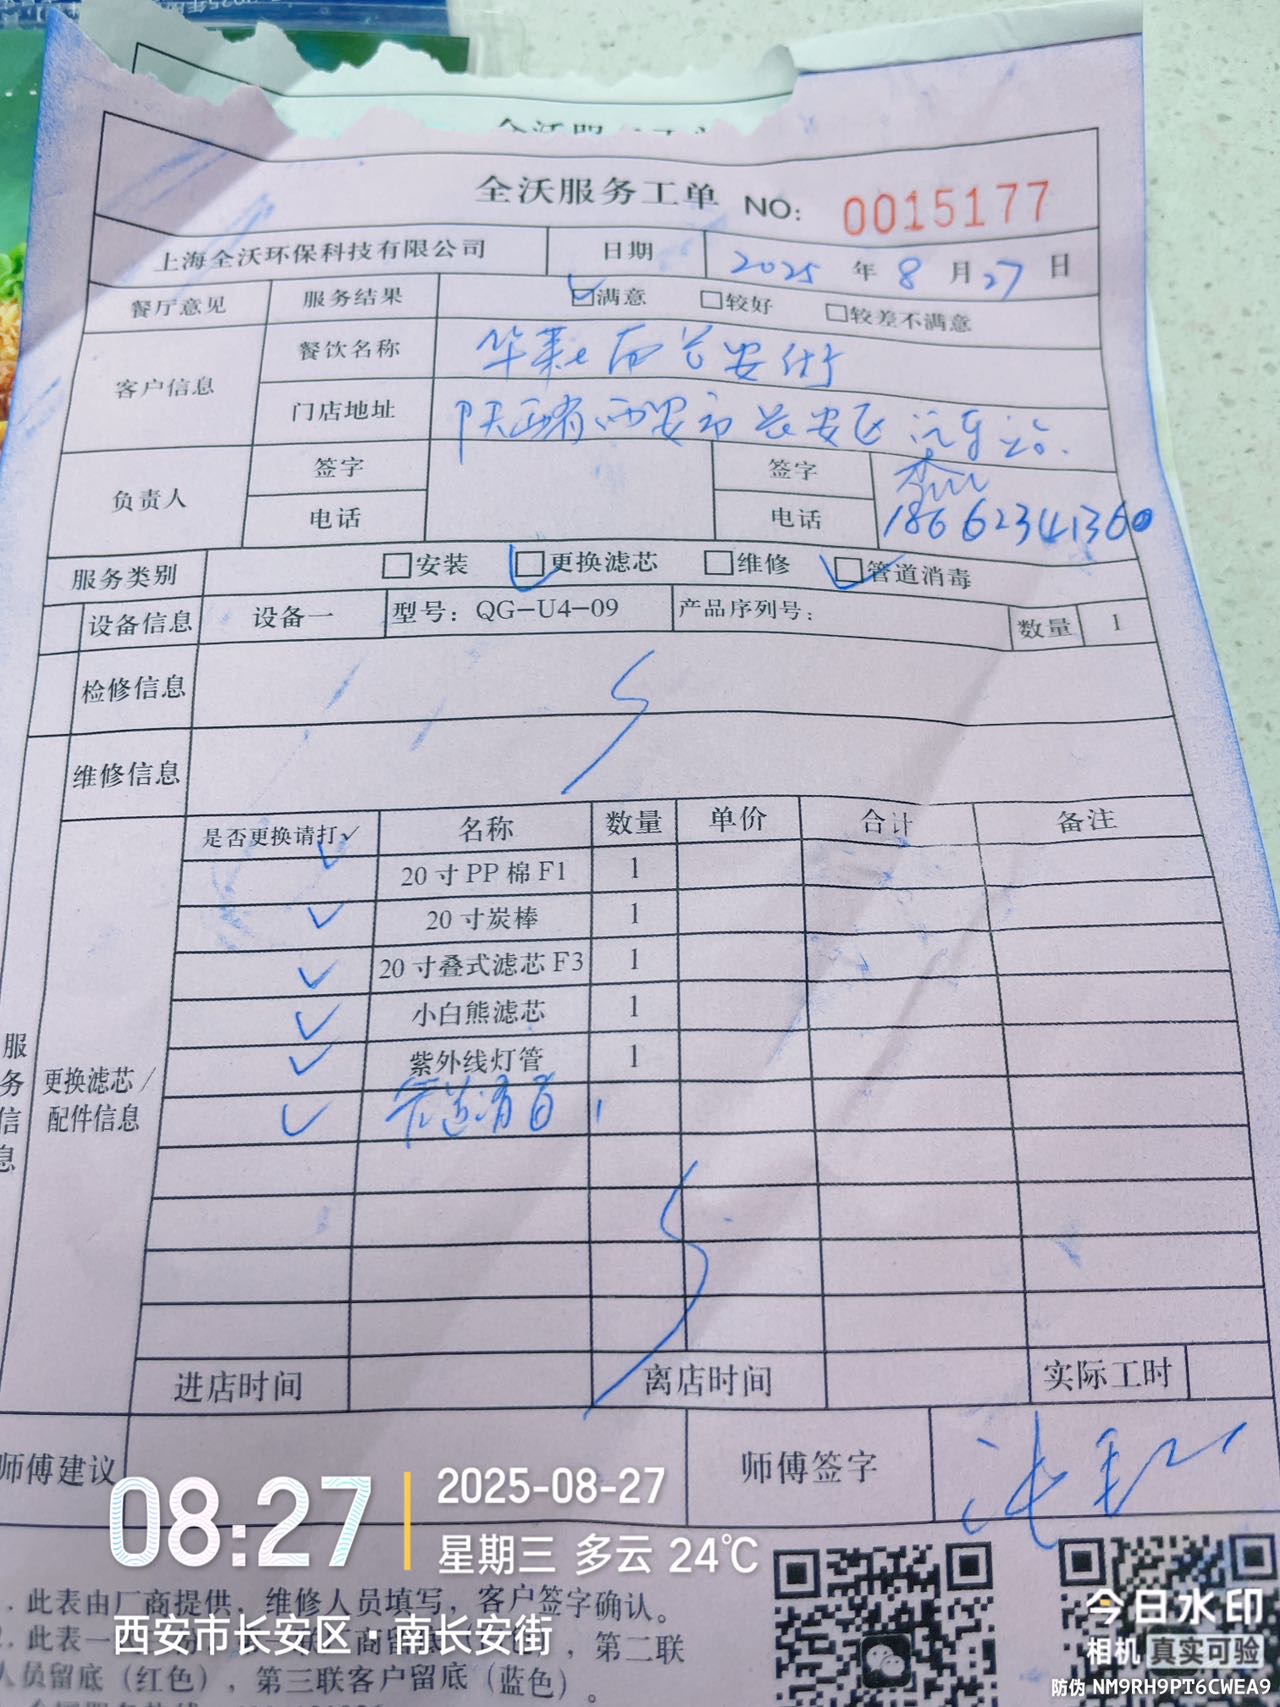 全沃服务工单 NO: 0015177
上海全沃环保科技有限公司 日期 2025 年 8 月 27 日
餐厅意见 服务结果 ☑满意 □较好 □较差不满意
客户信息 餐饮名称 华莱士南长安街
门店地址 陕西省西安市长安区汽车站.
负责人 签字 签字
电话 电话 18662341360
服务类别 □安装 ☑更换滤芯 □维修 ☑管道消毒
设备信息 设备一 型号: QG-U4-09 产品序列号: 数量 1
检修信息
维修信息
服务信息
更换滤芯/配件信息
是否更换请打✓ 名称 数量 单价 合计 备注
✓ 20寸PP棉F1 1
✓ 20寸炭棒 1
✓ 20寸叠式滤芯F3 1
✓ 小白熊滤芯 1
✓ 紫外线灯管 1
✓ 管道消毒 1
进店时间 离店时间 实际工时
师傅建议 师傅签字
08:27 2025-08-27
星期三 多云 24℃
西安市长安区·南长安街
.此表由厂商提供,维修人员填写,客户签字确认。
.此表一 商 ,第二联
人员留底(红色),第三联客户留底(蓝色)。
今日水印
相机 真实可验
防伪 NM9RH9PT6CWEA9